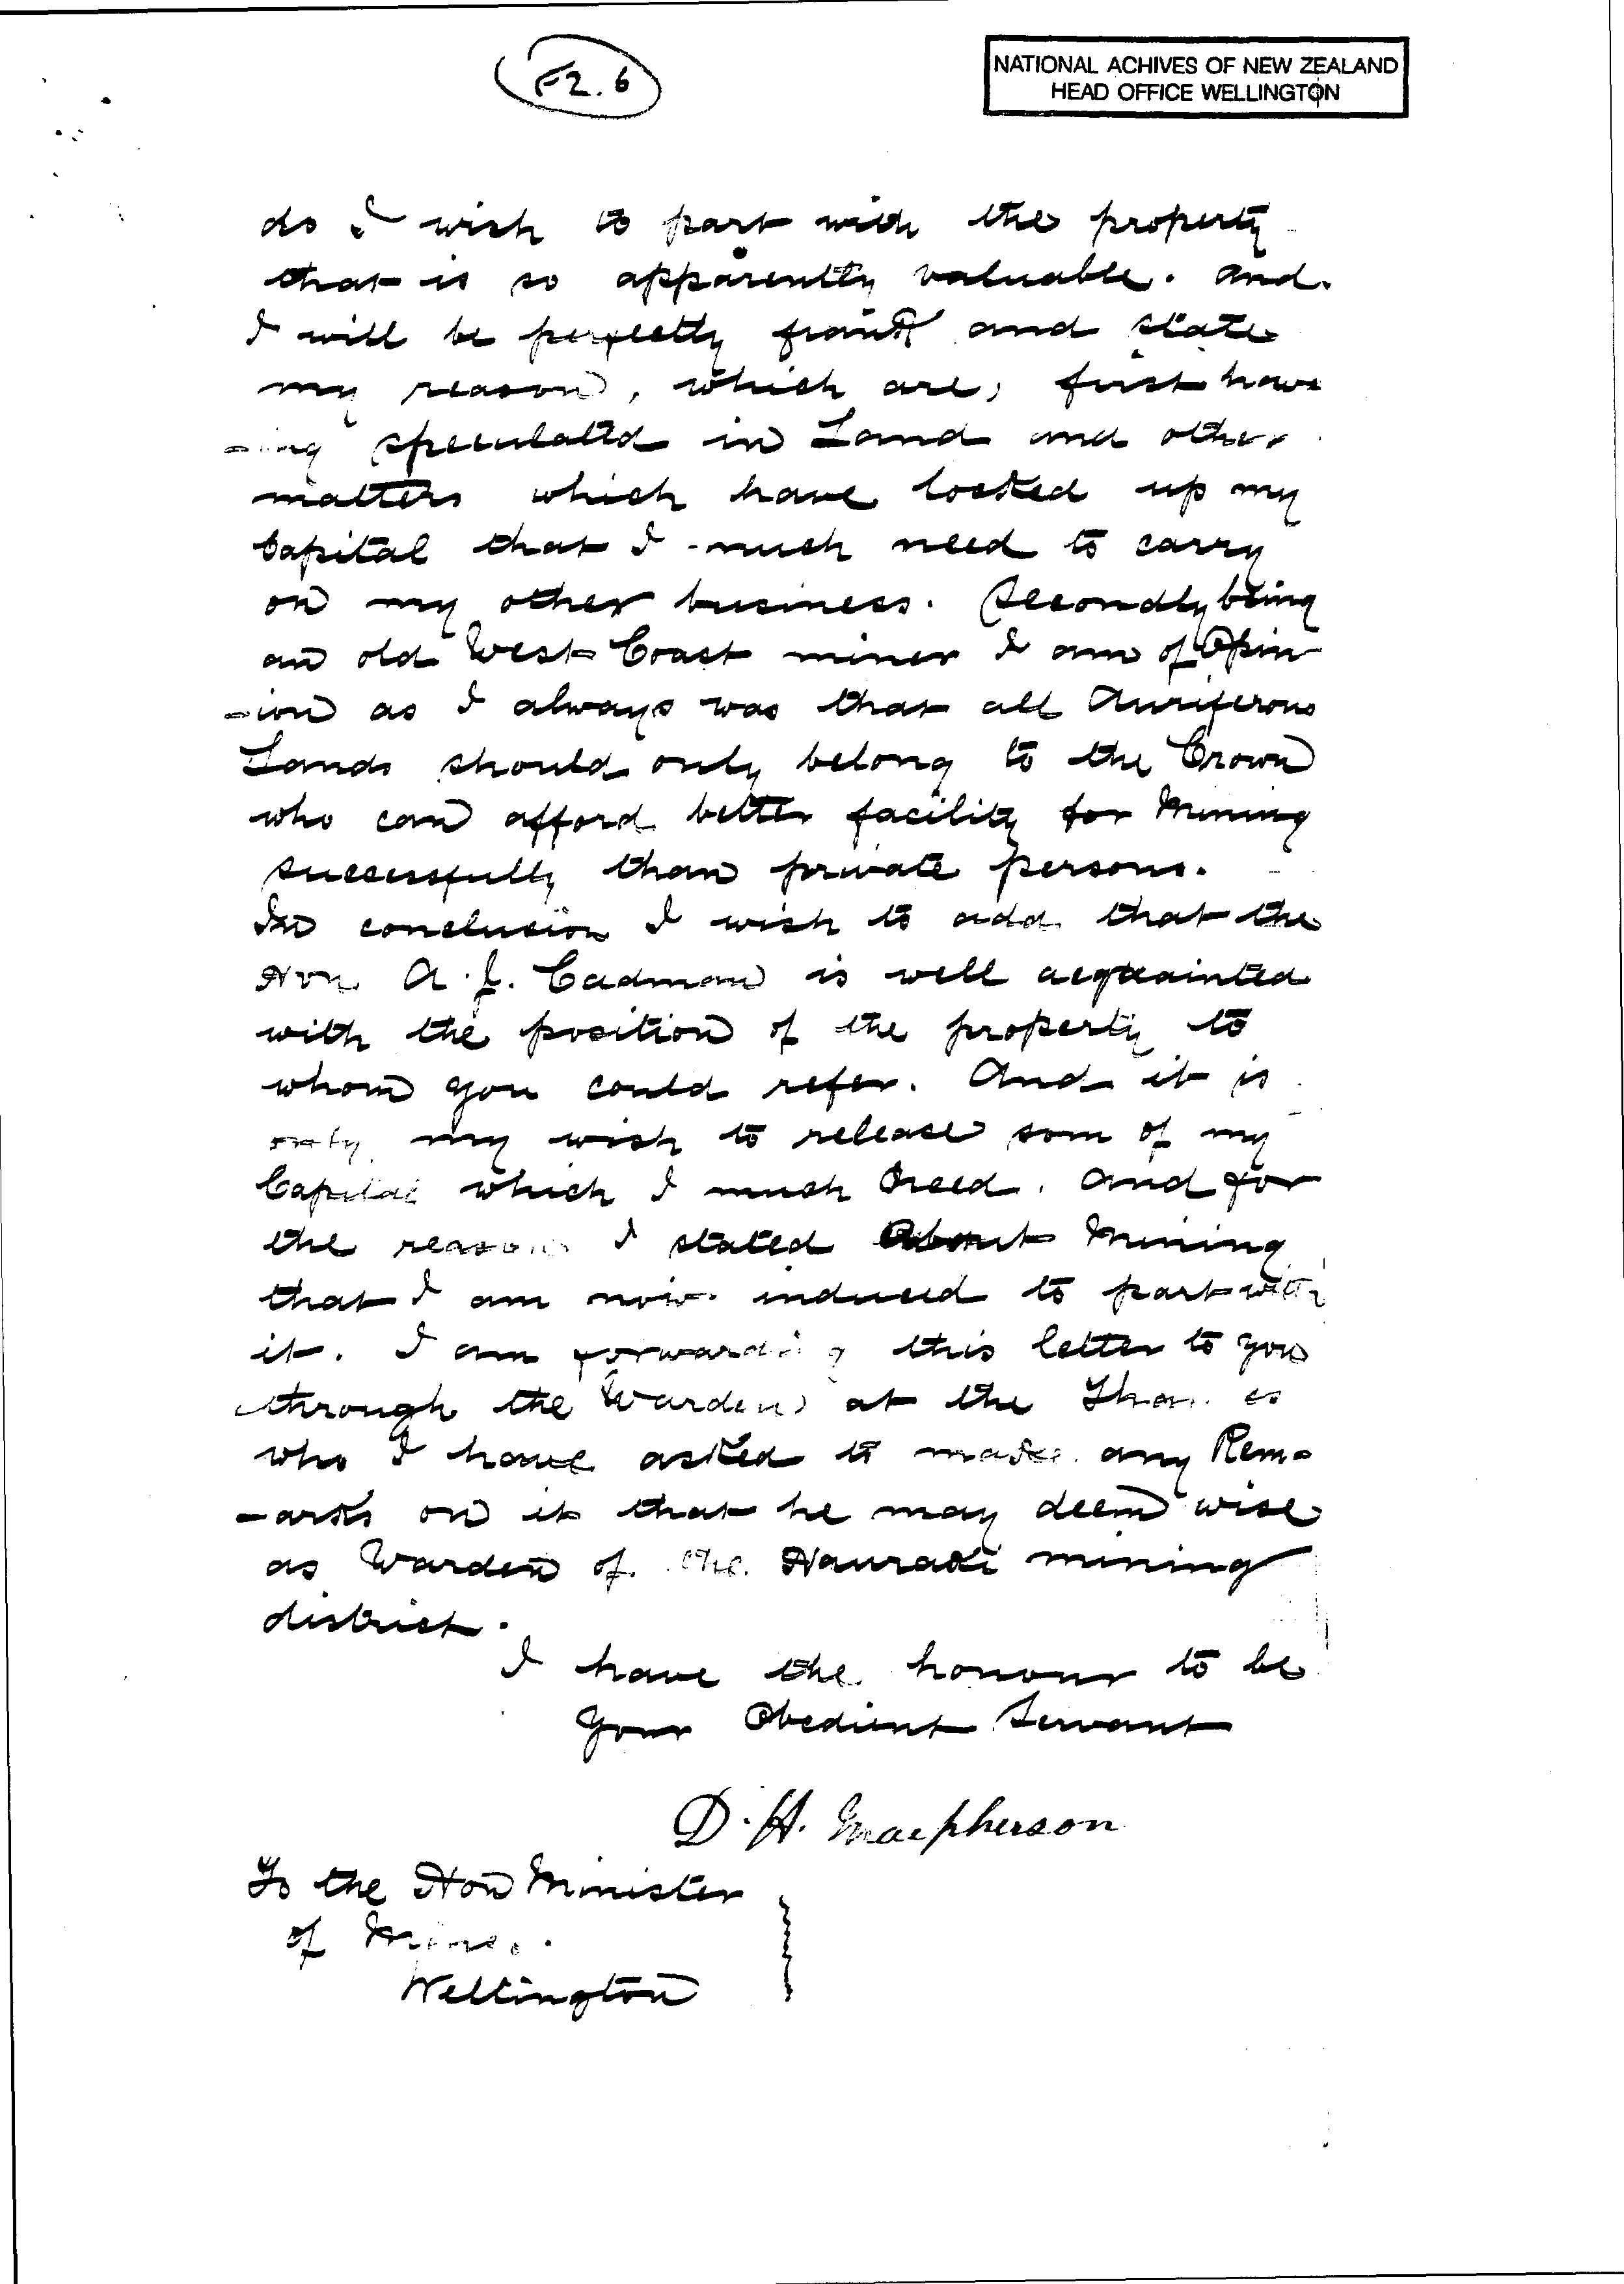 F2.6
NATIONAL ACHIVES OF NEW ZEALAND
HEAD OFFICE WELLINGTON
do I wish to part with the property
that is so apparently valuable. And.
I will be perfectly frank and state
my reason, which are, first have
-ing speculated in Land and other
matters which have locked up my
Capital that I much need to carry
on my other business. Secondly being
an old West Coast miner I am of Opin
-ion as I always was that all Auriferous
Lands should only belong to the Crown
who can afford better facility for Mining
successfully than private persons.
In conclusion I wish to add that the
Hon A. J. Cadman is well acquainted
with the position of the property to
whom you could refer. And it is
only my wish to release som of my
Capital which I much Need. And for
the reasons I stated About Mining
that I am now induced to part with
it. I am forwarding this letter to you
through the Warden at the Thames
who I have asked to make any Rem-
-arks on it that he may deem wise
as Warden of the Hauraki mining
district.
I have the honour to be
Your Obedient Servant
D. H. Macpherson
To the Hon Minister
of Mines.
Wellington